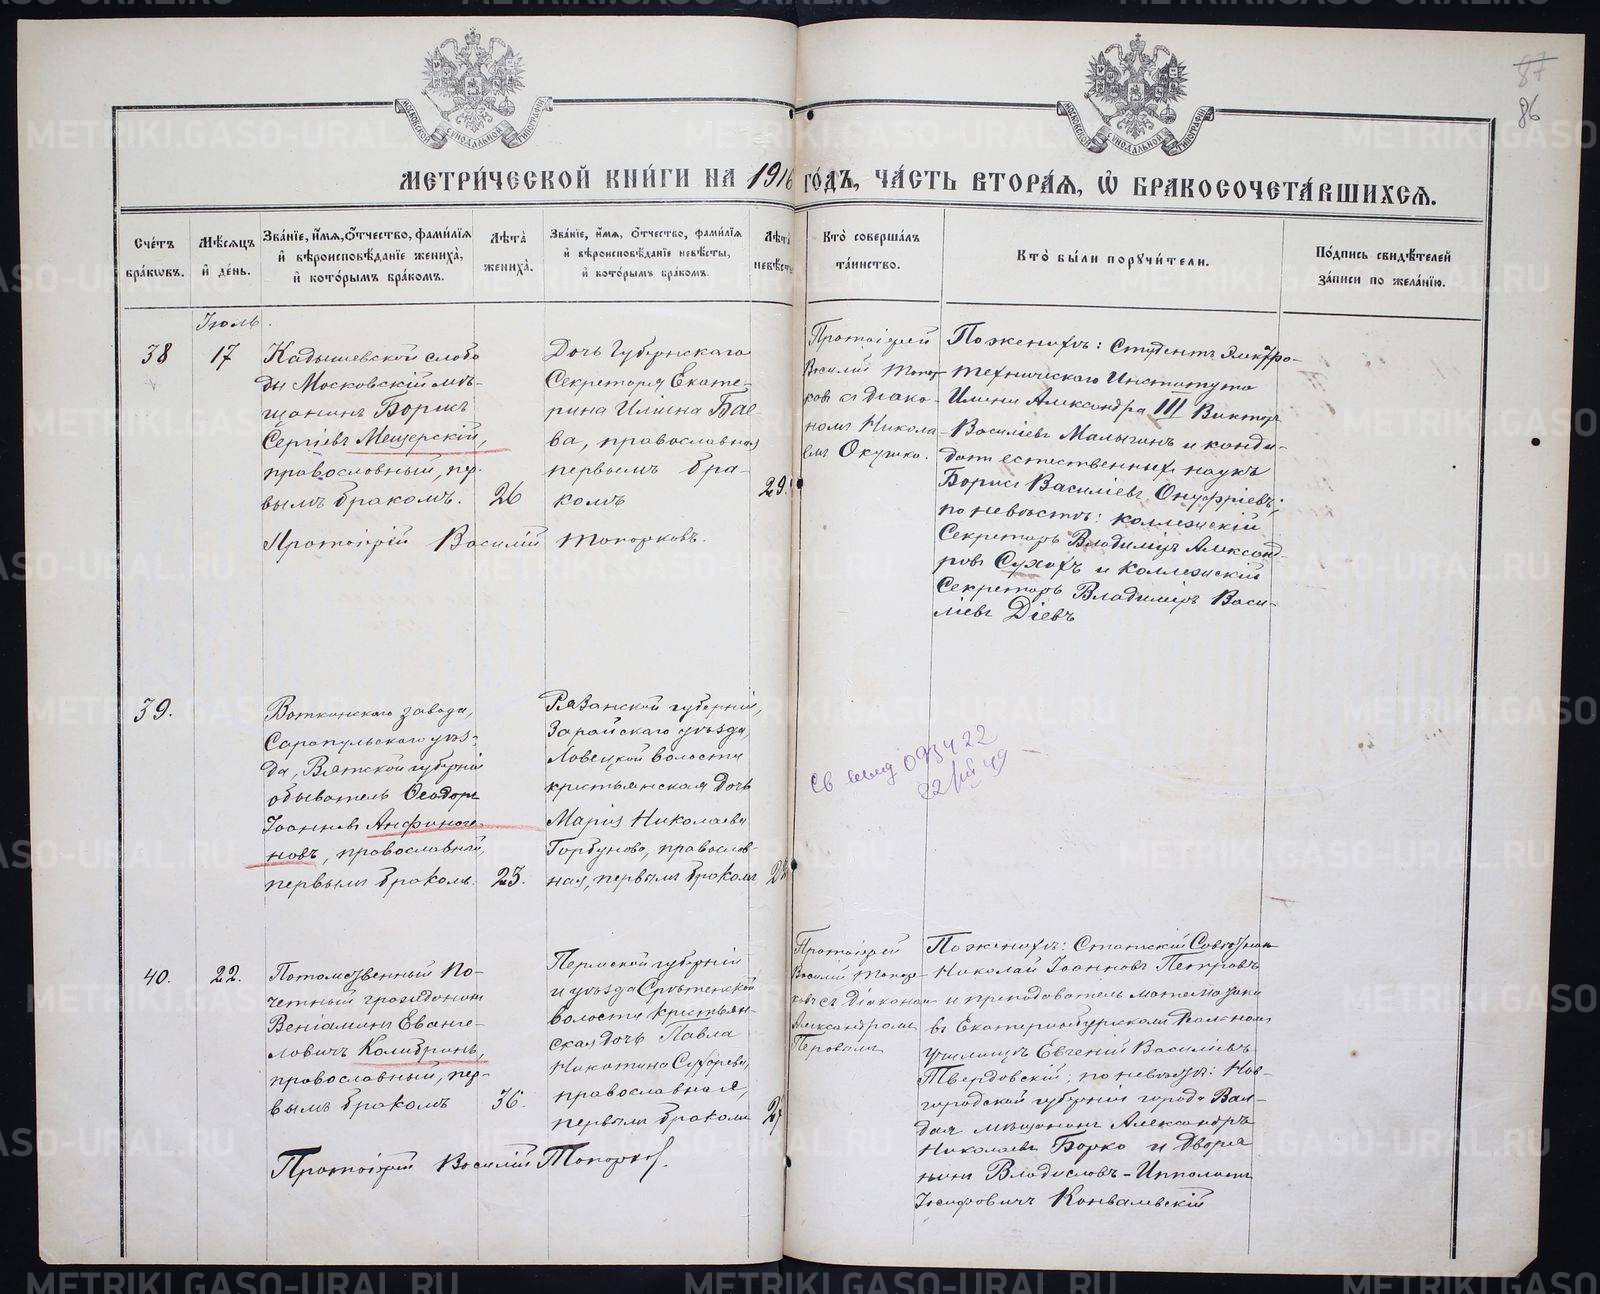 87
86
МОСКОВСКОЙ СѴНОДАЛЬНОЙ ТИПОГРАФІИ
МОСКОВСКОЙ СѴНОДАЛЬНОЙ ТИПОГРАФІИ
МЕТРИ́ЧЕСКОЙ КНИ́ГИ НА 1916 ГО́ДЪ, ЧА́СТЬ ВТОРА́Я, Ѡ҆ БРАКОСОЧЕТА́ВШИХСЯ.
Сче́тъ бра́кѡвъ.
Мѣ́сяцъ и҆ де́нь.
Зва́нїе, и҆́мя, ѻ҆́тчество, фами́лїя и҆ вѣроисповѣ́данїе жениха̀, и҆ кото́рымъ бра́комъ.
Лѣ́та жениха̀.
Зва́нїе, и҆́мя, ѻ҆́тчество, фами́лїя и҆ вѣроисповѣ́данїе невѣ́сты, и҆ кото́рымъ бра́комъ.
Лѣ́та невѣ́сты
Кто̀ соверша́лъ та́инство.
Кто̀ бы́ли поручи́тели.
По́дпись свидѣ́телей за́писи по жела́нїю.
Іюль.
38
17
Кадышевской слобо
ды Московскій мѣ-
щанинъ Борисъ
Сергіевъ Мещерскій,
православный, пер-
вымъ бракомъ.
26
Дочь Губернскаго
Секретаря Екате-
рина Иліина Бае-
ва, православная
первымъ бра-
комъ
29.
Протоіерей Василій Топорковъ.
Протоіерей
Василій Топор-
ковъ с діако-
номъ Никола
емъ Окушко.
По женихѣ: Студентъ Электро-
техническаго Института
Имени Александра III Викторъ
Василіевъ Малыгинъ и канди-
датъ естественныхъ наукъ
Борисъ Василіевъ Онуфріевъ;
по невѣстѣ: коллежскій
Секретарь Владиміръ Александ-
ровъ Сухохъ и Коллежскій
Секретарь Владиміръ Васи-
ліевъ Діевъ
39.
Воткинскаго завода,
Сарапульскаго уѣз-
да, Вятской губерніи
обыватель Ѳеодоръ
Іоанновъ Анфиноге-
новъ, православный,
первымъ бракомъ.
23.
Рязанской губерніи,
Зарайскаго уѣзда
Ловецкой волости
крестьянская дочь
Марія Николаева
Горбунова, православ-
ная, первымъ бракомъ
Св 093422
22/VII 49
40.
22.
Потомственный По-
четный гражданинъ
Веніаминъ Еванге-
ловичъ Колибринъ,
православный, пер-
вымъ бракомъ
36.
Пермской губерніи
и уѣзда Срѣтенской
волости крестьян-
ская дочь Павла
Никитина Сухарева,
православная,
первымъ бракомъ
Протоіерей Василій Топорков.
Протоіерей
Василій Топор-
ковъ съ Діакономъ
Александромъ
Перовымъ
По женихѣ: Статскій Совѣтник
Николай Іоанновъ Петровъ
и преподаватель математики
въ Екатеринбургскомъ Реальном
училищѣ Евгеній Василіевъ
Твердовскій; по невѣстѣ: Нов-
городской губерніи города Вал-
дая мѣщанинъ Александръ
Николаевъ Борко и Дворя
нинъ Владиславъ-Ипполитъ
Іосифовичъ Конвалевскій